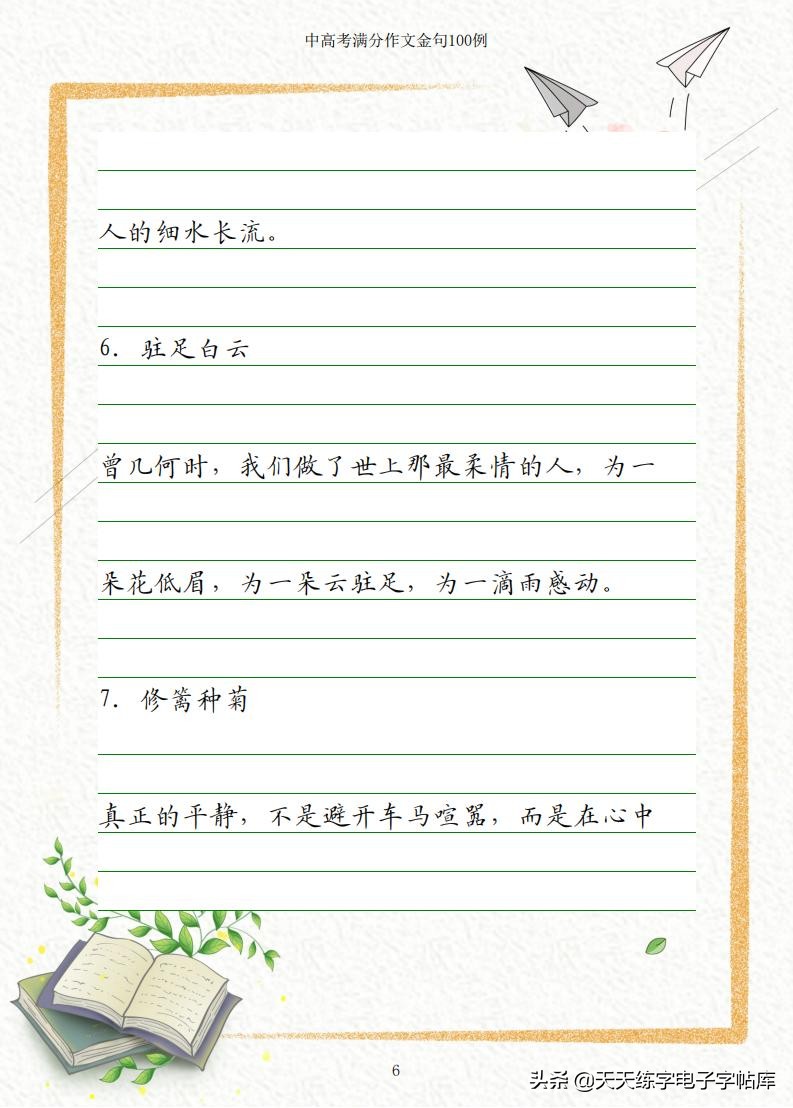 中高考满分作文金句100例
人的细水长流。
6. 驻足白云
曾几何时，我们做了世上那最柔情的人，为一
朵花低眉，为一朵云驻足，为一滴雨感动。
7. 修篱种菊
真正的平静，不是避开车马喧嚣，而是在心中
6
头条 @天天练字电子字帖库